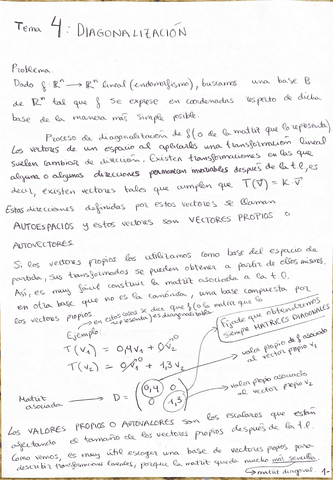 Tema 4: DIAGONALIZACIÓN
Problema.
Dado f: Rⁿ → Rⁿ lineal (endomorfismo), buscamos una base B
de Rⁿ tal que f se exprese en coordenadas respecto de dicha
base de la manera más simple posible.
Proceso de diagonalización de f (o de la matriz que lo representa)
Los vectores de un espacio al aplicarles una transformación lineal
suelen cambiar de dirección. Existen transformaciones en las que
alguna o algunas direcciones permanecen invariables después de la t.l, es
decir, existen vectores tales que cumplen que T(v⃗) = k·v⃗
Estas direcciones definidas por estos vectores se llaman
AUTOESPACIOS y estos vectores son VECTORES PROPIOS o
AUTOVECTORES.
Si los vectores propios los utilizamos como base del espacio de
partida, sus transformados se pueden obtener a partir de ellos mismos.
Así, es muy fácil construir la matriz asociada a la t.l.
en otra base que no es la canónica, una base compuesta por
los vectores propios.
en estos casos se dice que f (o la matriz que lo
representa) es diagonalizable
Ejemplo:
Fíjate que obtendremos
siempre MATRICES DIAGONALES
T(v₁) = 0,4v₁ + 0v₂
T(v₂) = 0v₁ + 1,3v₂
valor propio de f asociado
al vector propio v₁
Matriz
asociada
D = (0,4 0
0 1,3)
valor propio asociado
al vector propio v₂
Los VALORES PROPIOS O AUTOVALORES son los escalares que están
afectando el tamaño de los vectores propios después de la t.l.
Como vemos, es muy útil escoger una base de vectores propios para
describir transformaciones lineales, porque la matriz queda mucho más sencilla.
→ matriz diagonal.
1-